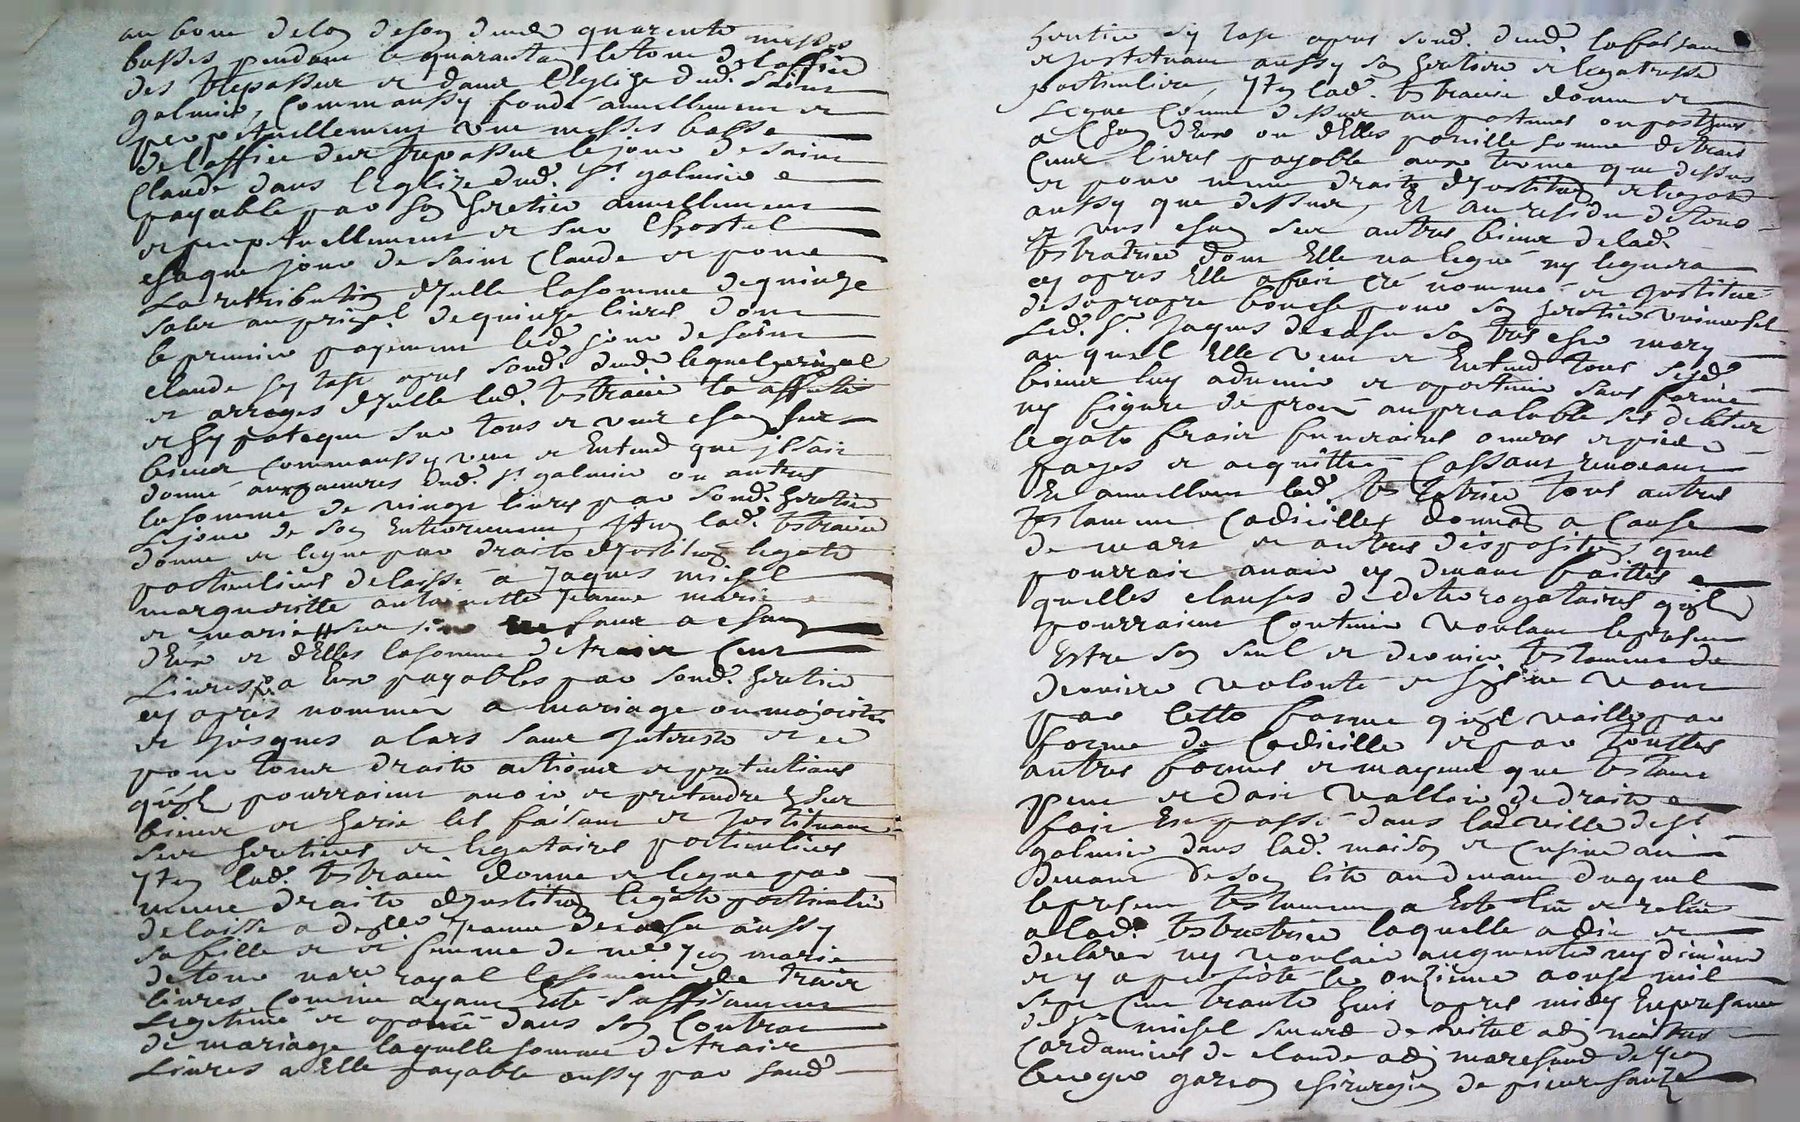 au bout de lan de son deced quarente messes
basses pendant le quarantain le tout de loffice
des trepassez et dans lEglize dud. saint
galmier, Comm aussy fonde annuellement et
perpetuellement une messes basse
de loffice deux trepassez le jour de saint
Claude dans lEglize dud. St galmier e
payable par son heretier annuellement
et perpetuellement et sur lhostel
chaque jour de saint Claude et pour
La retribution dycelle la somme de quinze
solz au prizal. de quinze livres dont
le premier payement led. jour de saint
claude
et arrages dycelle lad. testratrice la affecte
et hypoteque sur tous et uns chaq ses
bienz Comm aussy veut et Entend que yl soit
donné aux pauvres dud. St galmier ou autres
la somme de vingt livres par sond. heretier
le jour de son Enterrement, Item lad. testratrice
donne et legue par droits dynstitution legats
particuliers delaisse a Jaques michel
margueritte antoinette Jeanne marie
et marie
dEux et dElles la somme de trois Cent
Livres a Eux payables par sond. heretier
cy apres nommer a mariage ou majorité
et jusques a lors sans Interests et ce
pour tous droits actions et pretentions
quyls pourraient avoir et pretendre Esur
bienz et hoirie les faisant et Instituant
ses heretiers et legataires particuliers
Item lad. testratrice donne et legue par
meme droits dynstitution legats particulier
delaisse a delle Jeanne aussy
sa fille et femme de me marie
detour notre royal la somme de trois
livres Comme ayant Esté suffisamment
Legitimé et aporté dans son Contrat
de mariage laquelle somme de trois
Livres a Elle payable aussy par sond.
heretier cy tost apres sond. deced. la faisant
et jnstituant aussy son heretiere et legatresse
particuliere, Item lad. testratrice donne et
Legue Comme dessus au postumes ou posthumes
a Chaq dEux ou dElles pareille somme de trois
Cent livres payable aux terme que dessus
et pour meme droits dynstitution et legats
aussy que dessus, Et au residu de tous
et uns chaq ses autres bienz de lad.
testratrice dont Elle na legué ny leguera
cy apres Elle a fait Cré nommé et Institué
de sa propre bouche pour son heretier universel
Led. Sr. Jaques son tres cher mary
auquel Elle veut et Entend tous sesd.
bienz luy advenir et apartenir sans forme
ny figure de procé au prealable ses debtes
legats fraix funeraires œuvres
payes et acquittés Cassant revocant
Et annullant lad. testratrice tous autres
testament Codicilles donnas a Cause
de mort et autres dispositions quel
pourroit avoir cy devant faittes e
quelles clauses de detrorogatoires quils
pourraient Contenir voulant le present
Estre son seul et dernier testament de
derniere volonté et sy yl ne vaut
par Cette forme quyl vaille par
forme de Codicille et par touttes
autres formes et mayens que testament
peut et doit valloir de droits e
fait Et passé dans lad. ville de St
galmier dans lad. maison et Cuisine au
devant de son lits au devant duquel
le present testament a Esté lu et relu
a lad. testratrice laquelle a dit et
declarer ny vouloir augmenter ny diminuer
et y a persisté le onzieme aoust mil
sept Cent trante huit apres midy En presance
de Sr michel simard de vital adj maitres
Cardaniers de claude adj marchand de
garcon chirurgien de pierre